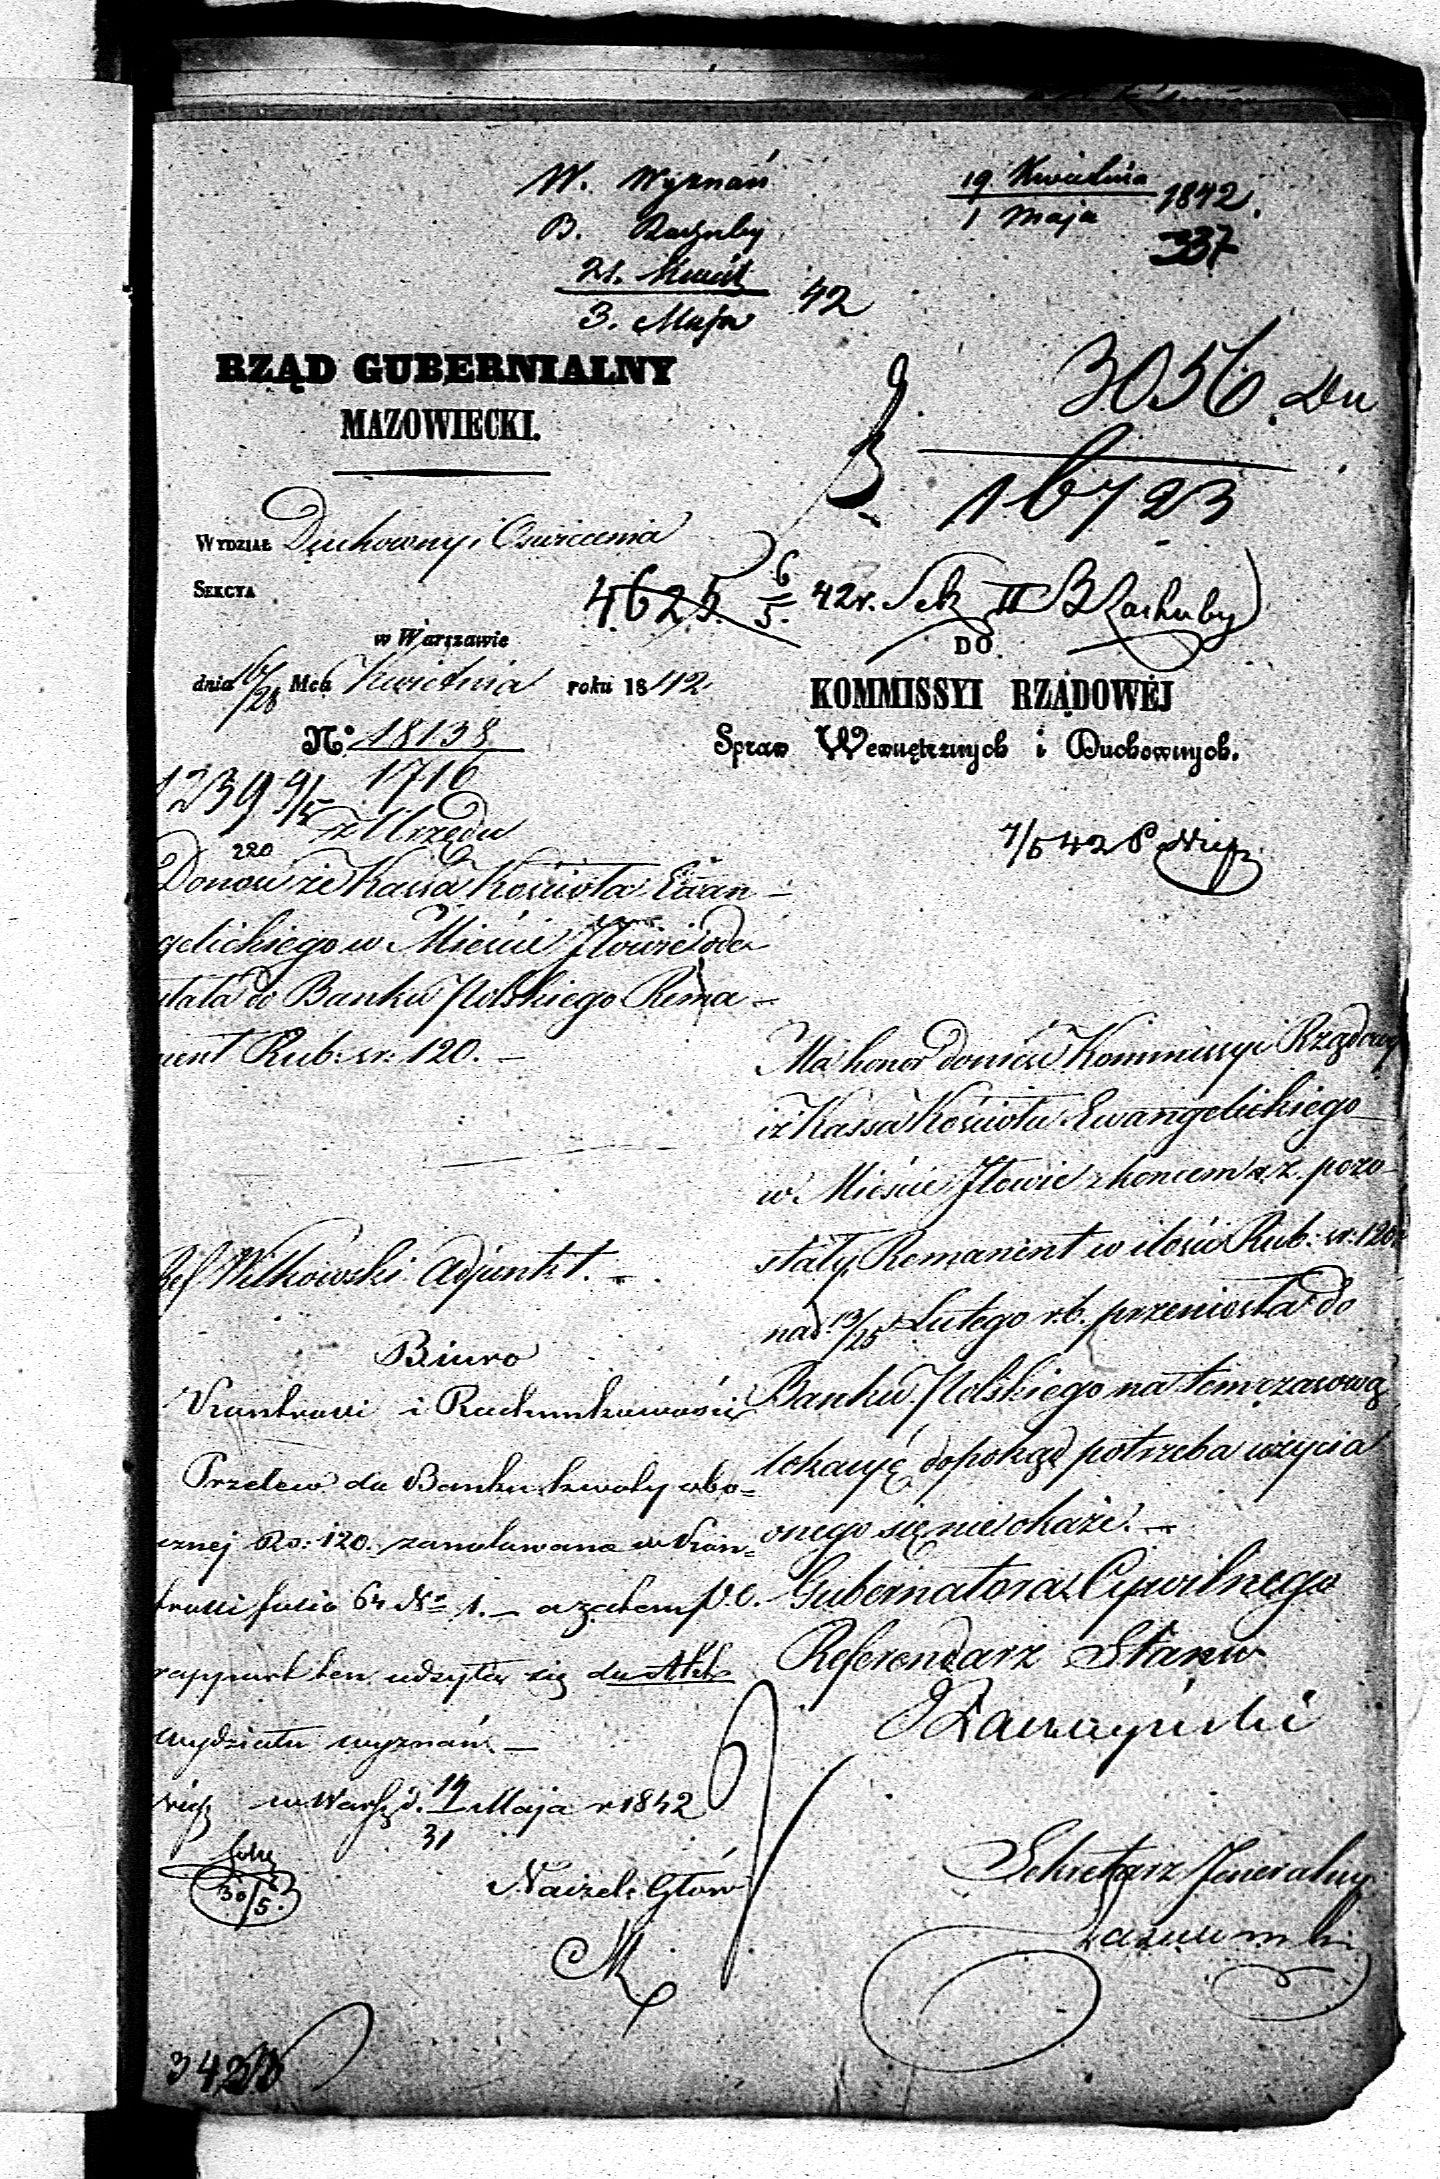 W. Wyznań
B. Rachuby
21. Kwiet
3. Maja 42
19 Kwietnia
1 Maja 1842.
337
RZĄD GUBERNIALNY
MAZOWIECKI.
3056
16723
WYDZIAŁ Duchowny i Oświecenia
SEKCYA
4625. 6/5. 42 r. Sek II B Rachuby
w Warszawie
dnia 16/28 Mca Kwietnia roku 1842
No. 18138
1716
12399/5
z Urzędu
220
DO
KOMMISSYI RZĄDOWÉJ
Spraw Wewnętrznych i Duchownych.
Donosi że Kassa Kościoła Ewan-
gelickiego w Mieście Iłowie ode
słała do Banku Polskiego Rema-
nent Rub: sr: 120. —
Ref Witkowski Adjunkt. —
Ma honor donieść Kommissyi Rządowej
iż Kassa Kościoła Ewangelickiego
w Mieście Iłowie z koncem r. z. pozo-
stały Remanent w ilości Rub: sr: 120
na d. 13/25 Lutego r. b. przeniosła do
Banku Polskiego na tymczasową
lokacyę dopokąd potrzeba użycia
onego się nie okaże. —
Gubernatora Cywilnego
Referendarz Stanu
Sekretarz Jeneralny
Biuro
Kontroli i Rachunkowości
Przelew do Banku kwoty obo-
cznej Rs: 120. zanotowano w Kon-
trolli folio 64 No 1. — a zatem
rapport ten odsyła się do Akt
wydziału wyznań. —
w Warsz d. 19/31 Maja r 1842
30/5.
Naczel. Głów